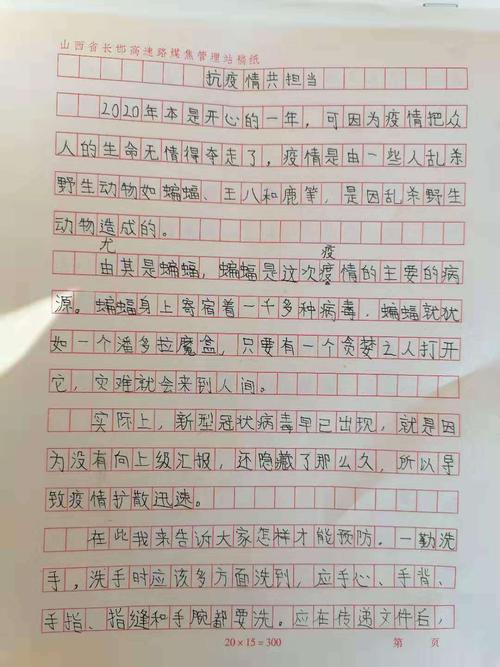 山西省长邯高速路煤焦管理站稿纸
抗疫情共担当
2020年本是开心的一年，可因为疫情把众
人的生命无情得夺走了，疫情是由一些人乱杀
野生动物如蝙蝠、王八和鹿等，是因乱杀野生
动物造成的。
尤 疫
由其是蝙蝠，蝙蝠是这次疫情的主要的病
源。蝙蝠身上寄宿着一千多种病毒，蝙蝠就犹
如一个潘多拉魔盒，只要有一个贪婪之人打开
它，灾难就会来到人间。
实际上，新型冠状病毒早已出现，就是因
为没有向上级汇报，还隐藏了那么久，所以导
致疫情扩散迅速。
在此我来告诉大家怎样才能预防。一勤洗
手，洗手时应该多方面洗到，应手心、手背、
手指、指缝和手腕都要洗。应在传递文件后，
20×15=300 第 页